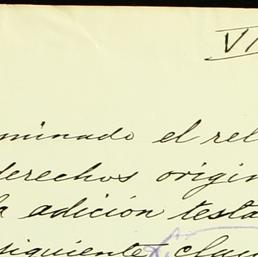 VI
minado el rel
derechos origin
la adición testa
siguiente clau